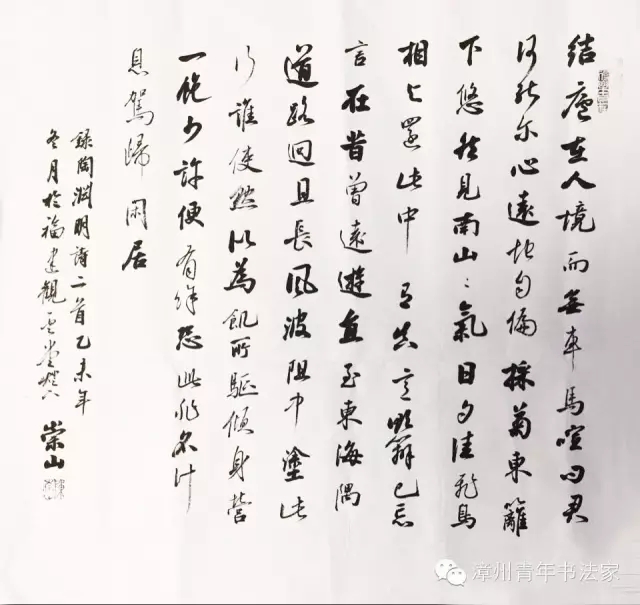 结廬在人境而無車馬喧问君
何能尔心遠地自偏採菊東籬
下悠然見南山〻氣日夕佳飛鳥
相与還此中有真意欲辯已忘
言在昔曾遠遊直至東海隅
道路迥且長風波阻中塗此
行誰使然似為飢所驅傾身營
一飽少許便有餘恐此非名计
息駕歸閑居
錄陶淵明詩二首乙未年
冬月於福建觀雲堂 崇山
漳州青年书法家